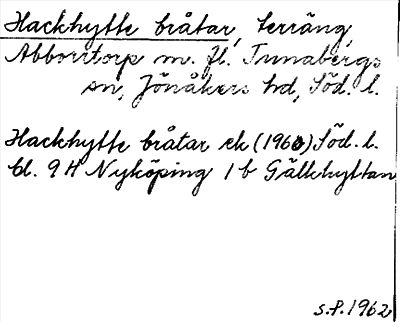 Hackhytte bråtar, terräng,
Abborrtorp m. fl. Tunabergs
sn, Jönåkers hd, Söd. l.
Hackhytte bråtar ek (1960) Söd. l.
bl. 9 H Nyköping 1 b Gälkhyttan
s.f. 1962